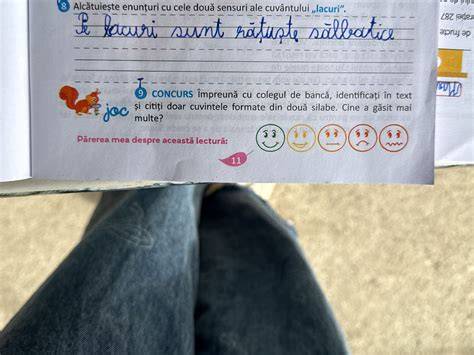 8 Alcătuiește enunțuri cu cele două sensuri ale cuvântului „lacuri”.
Pe lacuri sunt rățuște sălbatice
9 CONCURS Împreună cu colegul de bancă, identificați în text
și citiți doar cuvintele formate din două silabe. Cine a găsit mai
multe?
joc
Părerea mea despre această lectură:
11
de fructe
grației 287